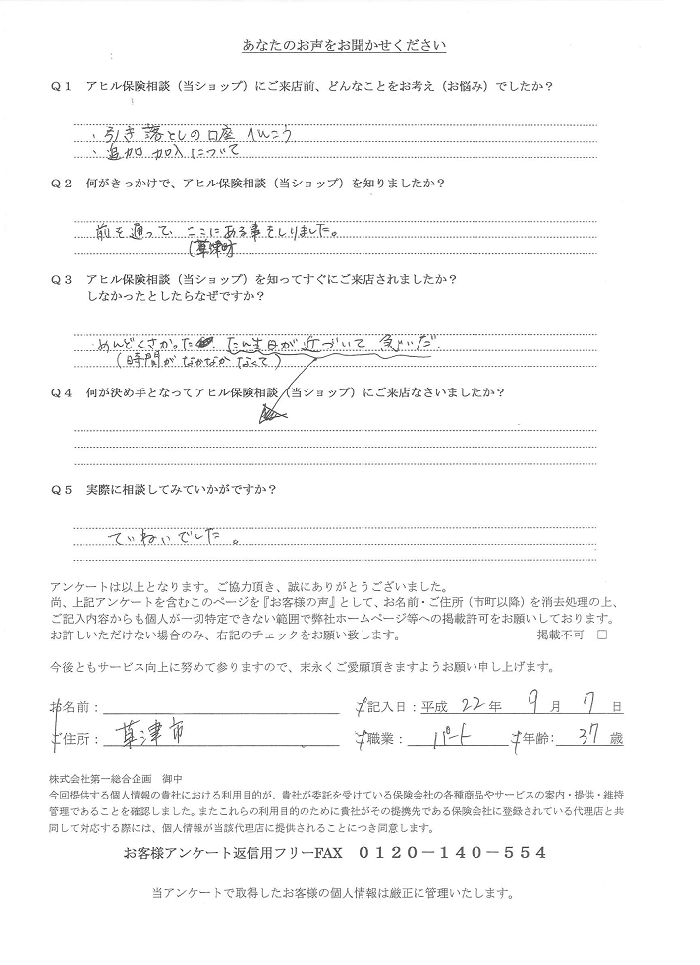 あなたのお声をお聞かせください
Q1 アヒル保険相談（当ショップ）にご来店前、どんなことをお考え（お悩み）でしたか？
・引き落としの口座 へんこう
・追加 加入について
Q2 何がきっかけで、アヒル保険相談（当ショップ）を知りましたか？
前を通って、ここにある事をしりました。
(草津町)
Q3 アヒル保険相談（当ショップ）を知ってすぐにご来店されましたか？
しなかったとしたらなぜですか？
めんどくさかった たん生日が近づいて 急いだ
(時間が なかなか なくて)
Q4 何が決め手となってアヒル保険相談（当ショップ）にご来店なさいましたか？
Q5 実際に相談してみていかがですか？
ていねいでした。
アンケートは以上となります。ご協力頂き、誠にありがとうございました。
尚、上記アンケートを含むこのページを『お客様の声』として、お名前・ご住所（市町以降）を消去処理の上、
ご記入内容からも個人が一切特定できない範囲で弊社ホームページ等への掲載許可をお願いしております。
お許しいただけない場合のみ、右記のチェックをお願い致します。 掲載不可 □
今後ともサービス向上に努めて参りますので、末永くご愛願頂きますようお願い申し上げます。
お名前： ご記入日：平成 22年 9月 7日
ご住所： 草津市 ご職業： パート ご年齢： 37歳
株式会社第一総合企画 御中
今回提供する個人情報の貴社における利用目的が、貴社が委託を受けている保険会社の各種商品やサービスの案内・提供・維持
管理であることを確認しました。またこれらの利用目的のために貴社がその提携先である保険会社に登録されている代理店と共
同して対応する際には、個人情報が当該代理店に提供されることにつき同意します。
お客様アンケート返信用フリーFAX 0120－140－554
当アンケートで取得したお客様の個人情報は厳正に管理いたします。